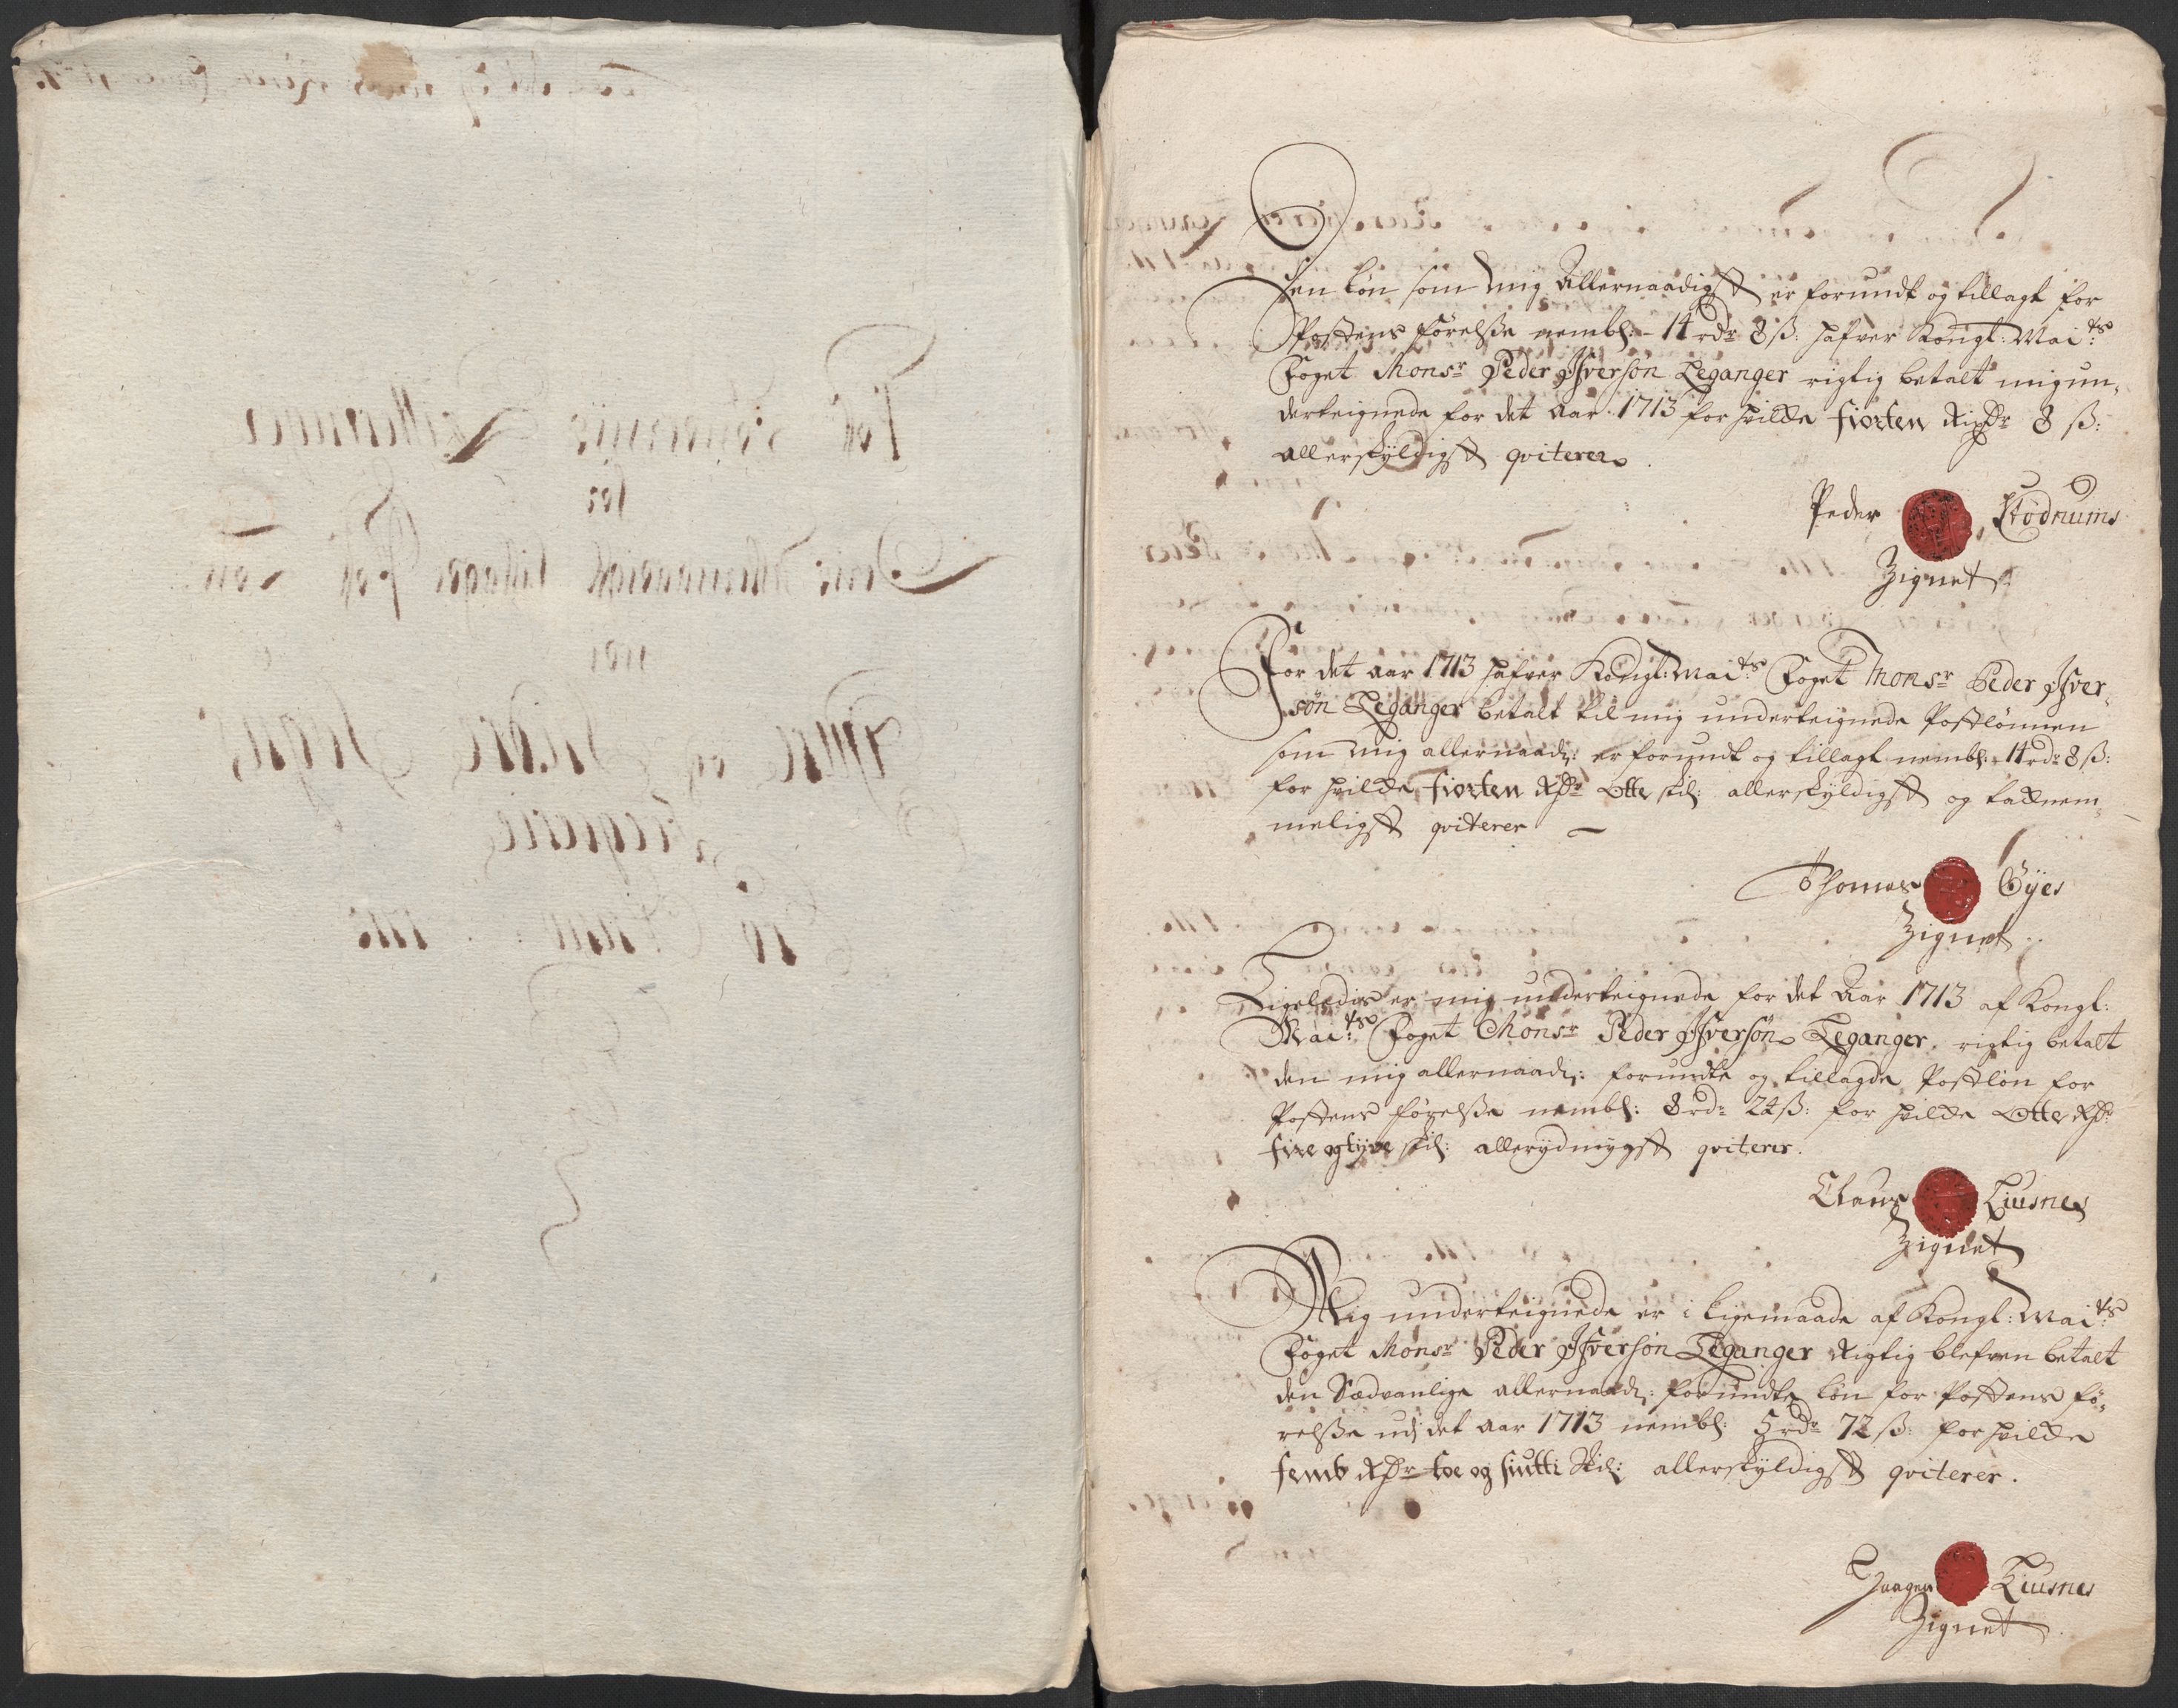 Den Løn som mig Allernaadigst er forundt og tillagt for
Postens førelsse nembl: 14 rdr 8 ß: hafver Kongl: Mai:ts
Foget Monsr Peder Ifversøn Leganger rigtig betalt mig un-
derteignede for det Aar 1713 for hvilke fiorten Rixdr 8 ß:
allerskyldigst qviterer.
Peder Stødnums
Zignet
For det Aar 1713 hafver Kongl: Mai:ts Foget Monsr Peder Ifver-
søn Leganger betalt til mig underteignede Postlønnen
som mig allernaadi: er forundt og tillagt nembl: 14 rdr 8 ß:
for hvilke fiorten Rdr Otte skil: allerskyldigst og tacknem-
meligst qviterer
Thomes Øyes
Zignet
Ligeledis er mig underteignede for det Aar 1713 af Kongl:
Mai:ts Foget Monsr Peder Ifversøn Leganger rigtig betalt
den mig allernaadi: forundte og tillagde Postløn for
Postens førelsse nembl: 8 rdr 24 ß: for hvilke Otte Rdr
fire og tyve skil: allerydmygst qviterer.
Claus Liusnes
Zignet
Mig underteignede er i ligemaade af Kongl: Mai:ts
Foget Monsr Peder Ifversøn Leganger Rigtig blefven betalt
den Sædvanlige allernaadi: forundte Løn for Postens fø-
relsse udj det Aar 1713 nembl: 5 rdr 72 ß: for hvilke
femb Rdr toe og siutti Skil: allerskyldigst qviterer.
Haagen Liusnes
Zignet